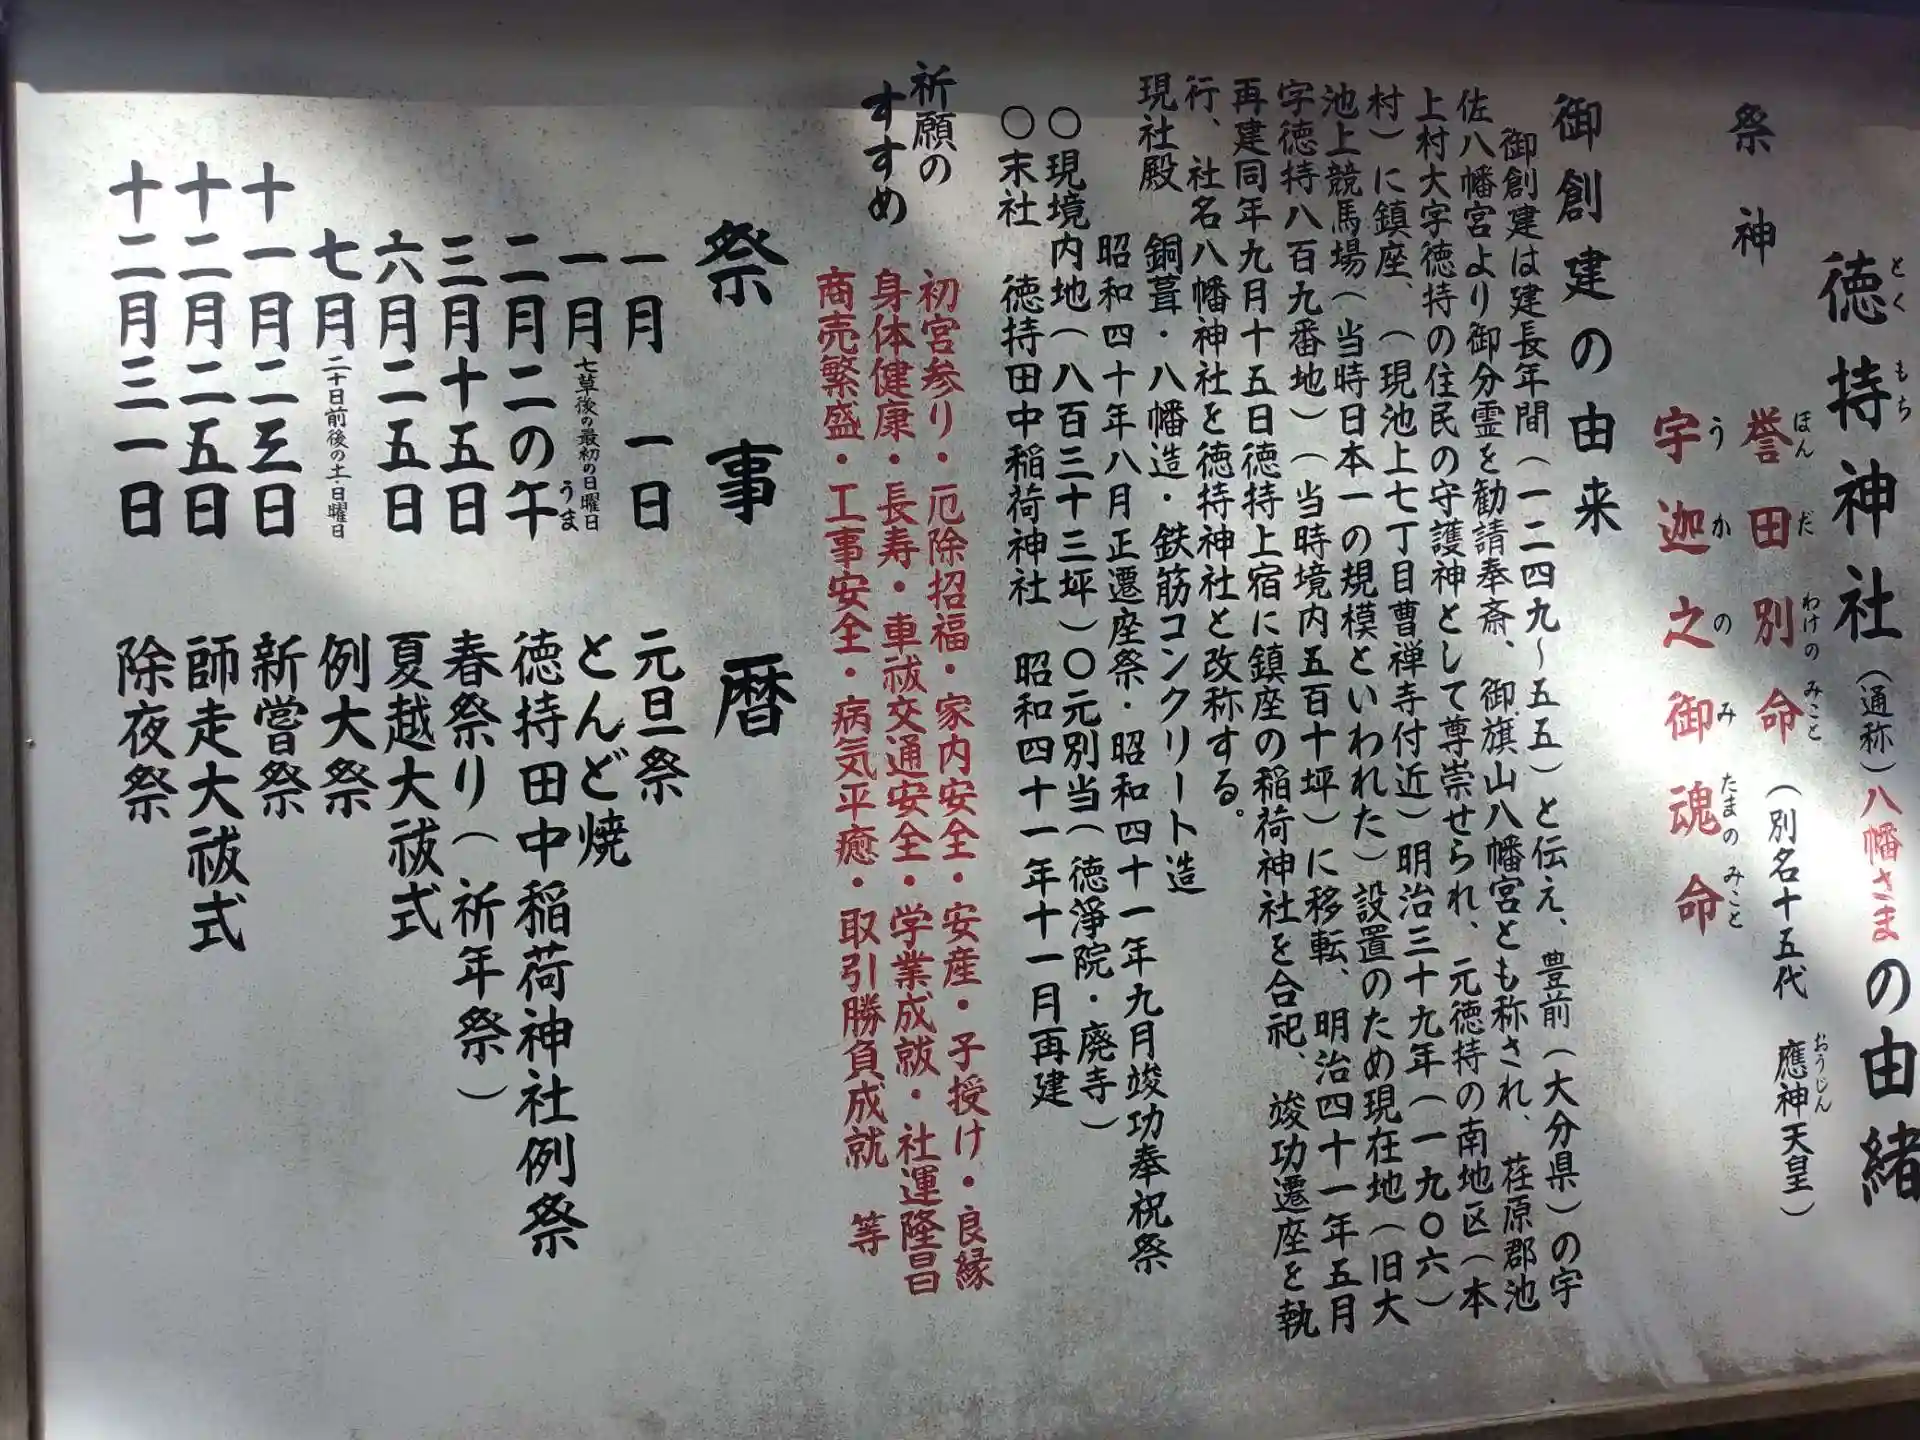 徳持神社(通称)八幡さまの由緒
とくもち
祭神
誉田別命(別名十五代 應神天皇)
ほんだわけのみこと
おうじん
宇迦之御魂命
うかのみたまのみこと
御創建の由来
御創建は建長年間(一二四九〜五五)と伝え、豊前(大分県)の宇
佐八幡宮より御分霊を勧請奉斎、御旗山八幡宮とも称され、荏原郡池
上村大字徳持の住民の守護神として尊崇せられ、元徳持の南地区(本
村)に鎮座、(現池上七丁目曹禅寺付近)明治三十九年(一九〇六)
池上競馬場(当時日本一の規模といわれた)設置のため現在地(旧大
字徳持八百九番地)(当時境内五百十坪)に移転、明治四十一年五月
再建同年九月十五日徳持上宿に鎮座の稲荷神社を合祀、竣功遷座を執
行、社名八幡神社を徳持神社と改称する。
現社殿 銅葺・八幡造・鉄筋コンクリート造
昭和四十年八月正遷座祭・昭和四十一年九月竣功奉祝祭
〇現境内地(八百三十三坪)〇元別当(徳淨院・廃寺)
〇末社 徳持田中稲荷神社 昭和四十一年十一月再建
祈願の
すすめ
初宮参り・厄除招福・家内安全・安産・子授け・良縁
身体健康・長寿・車祓交通安全・学業成就・社運隆昌
商売繁盛・工事安全・病気平癒・取引勝負成就 等
祭事暦
一月一日 元旦祭
一月 七草後の最初の日曜日 とんど焼
二月二の午 徳持田中稲荷神社例祭
うま
三月十五日 春祭り(祈年祭)
六月二五日 夏越大祓式
七月 二十日前後の土・日曜日 例大祭
十一月二三日 新嘗祭
十二月二五日 師走大祓式
十二月三一日 除夜祭